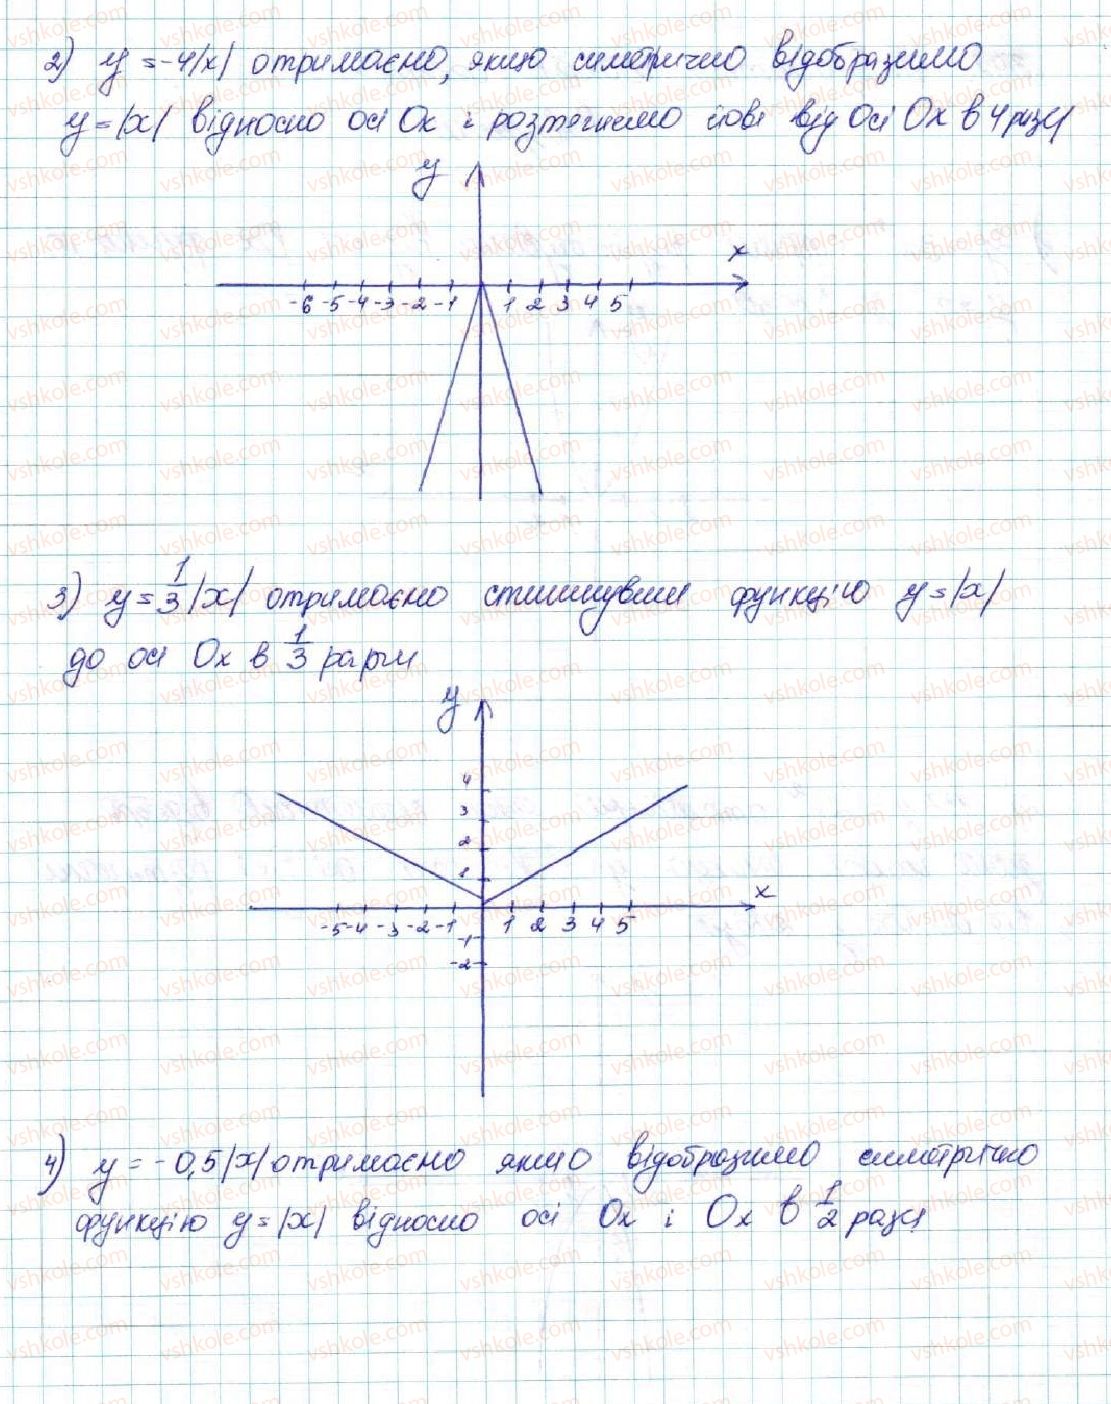 2) y = -4|x| отримаємо, якщо симетрично відобразимо
y = |x| відносно осі Ox і розтягнемо її від осі Ox в 4 рази
y
x
-6 -5 -4 -3 -2 -1 1 2 3 4 5
3) y = 1/3 |x| отримаємо стиснувши функцію y = |x|
до осі Ox в 1/3 рази
y
4
3
2
1
x
-5 -4 -3 -2 -1 1 2 3 4 5
-1
-2
4) y = -0,5|x| отримаємо якщо відобразимо симетрично
функцію y = |x| відносно осі Ox і Ox в 1/2 рази
vshkole.com